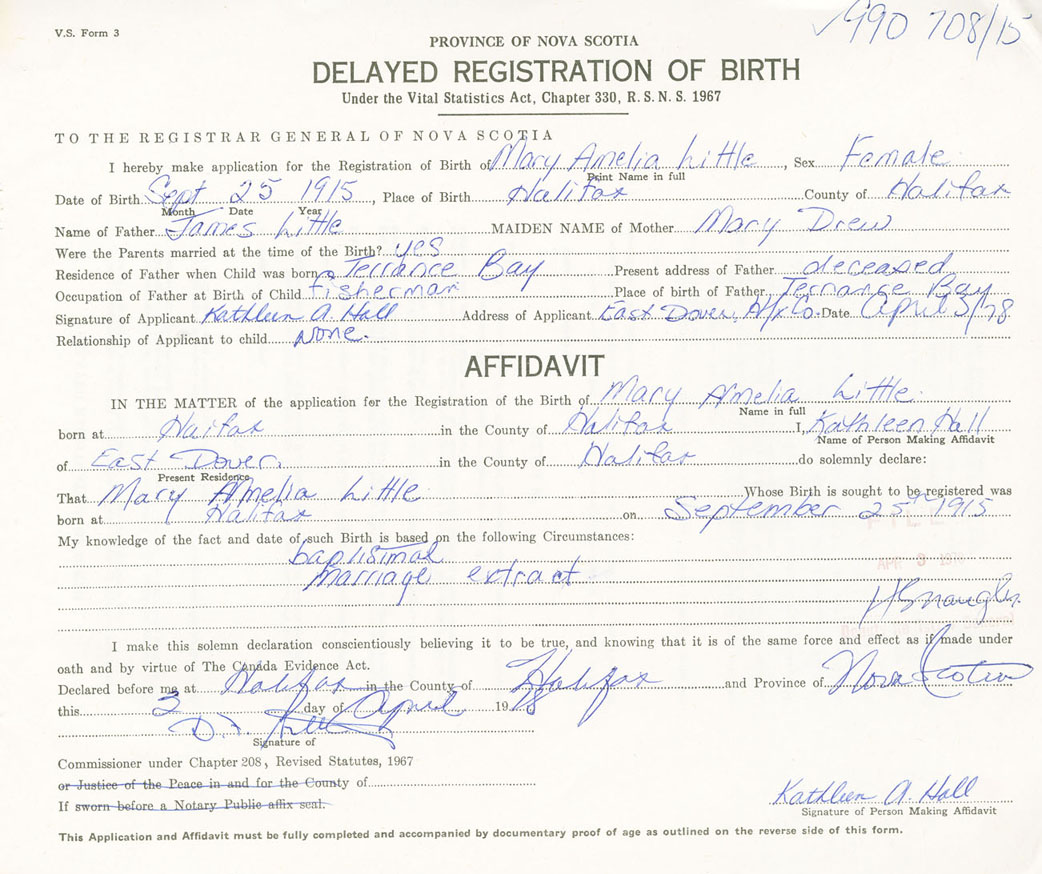 V.S. Form 3
990 708/15
PROVINCE OF NOVA SCOTIA
DELAYED REGISTRATION OF BIRTH
Under the Vital Statistics Act, Chapter 330, R. S. N. S. 1967
TO THE REGISTRAR GENERAL OF NOVA SCOTIA
I hereby make application for the Registration of Birth of Mary Amelia Little, Sex Female
Print Name in full
Date of Birth Sept 25 1915, Place of Birth Halifax County of Halifax
Month Date Year
Name of Father James Little MAIDEN NAME of Mother Mary Drew
Were the Parents married at the time of the Birth? yes
Residence of Father when Child was born Terrance Bay Present address of Father deceased
Occupation of Father at Birth of Child fisherman Place of birth of Father Terrance Bay
Signature of Applicant Kathleen A Hall Address of Applicant East Dover, Hfx Co. Date April 3/78
Relationship of Applicant to child None.
AFFIDAVIT
IN THE MATTER of the application for the Registration of the Birth of Mary Amelia Little
Name in full
born at Haifax in the County of Halifax I, Kathleen Hall
Name of Person Making Affidavit
of East Dover, in the County of Halifax do solemnly declare:
Present Residence
That Mary Amelia Little Whose Birth is sought to be registered was
born at Halifax on September 25th 1915
My knowledge of the fact and date of such Birth is based on the following Circumstances:
baptismal
marriage extract
APR 3
I make this solemn declaration conscientiously believing it to be true, and knowing that it is of the same force and effect as if made under
oath and by virtue of The Canada Evidence Act.
Declared before me at Halifax in the County of Halifax and Province of Nova Scotia
this 3 day of April 1978
Signature of
Commissioner under Chapter 208, Revised Statutes, 1967
or Justice of the Peace in and for the County of
If sworn before a Notary Public affix seal.
Kathleen A Hall
Signature of Person Making Affidavit
This Application and Affidavit must be fully completed and accompanied by documentary proof of age as outlined on the reverse side of this form.